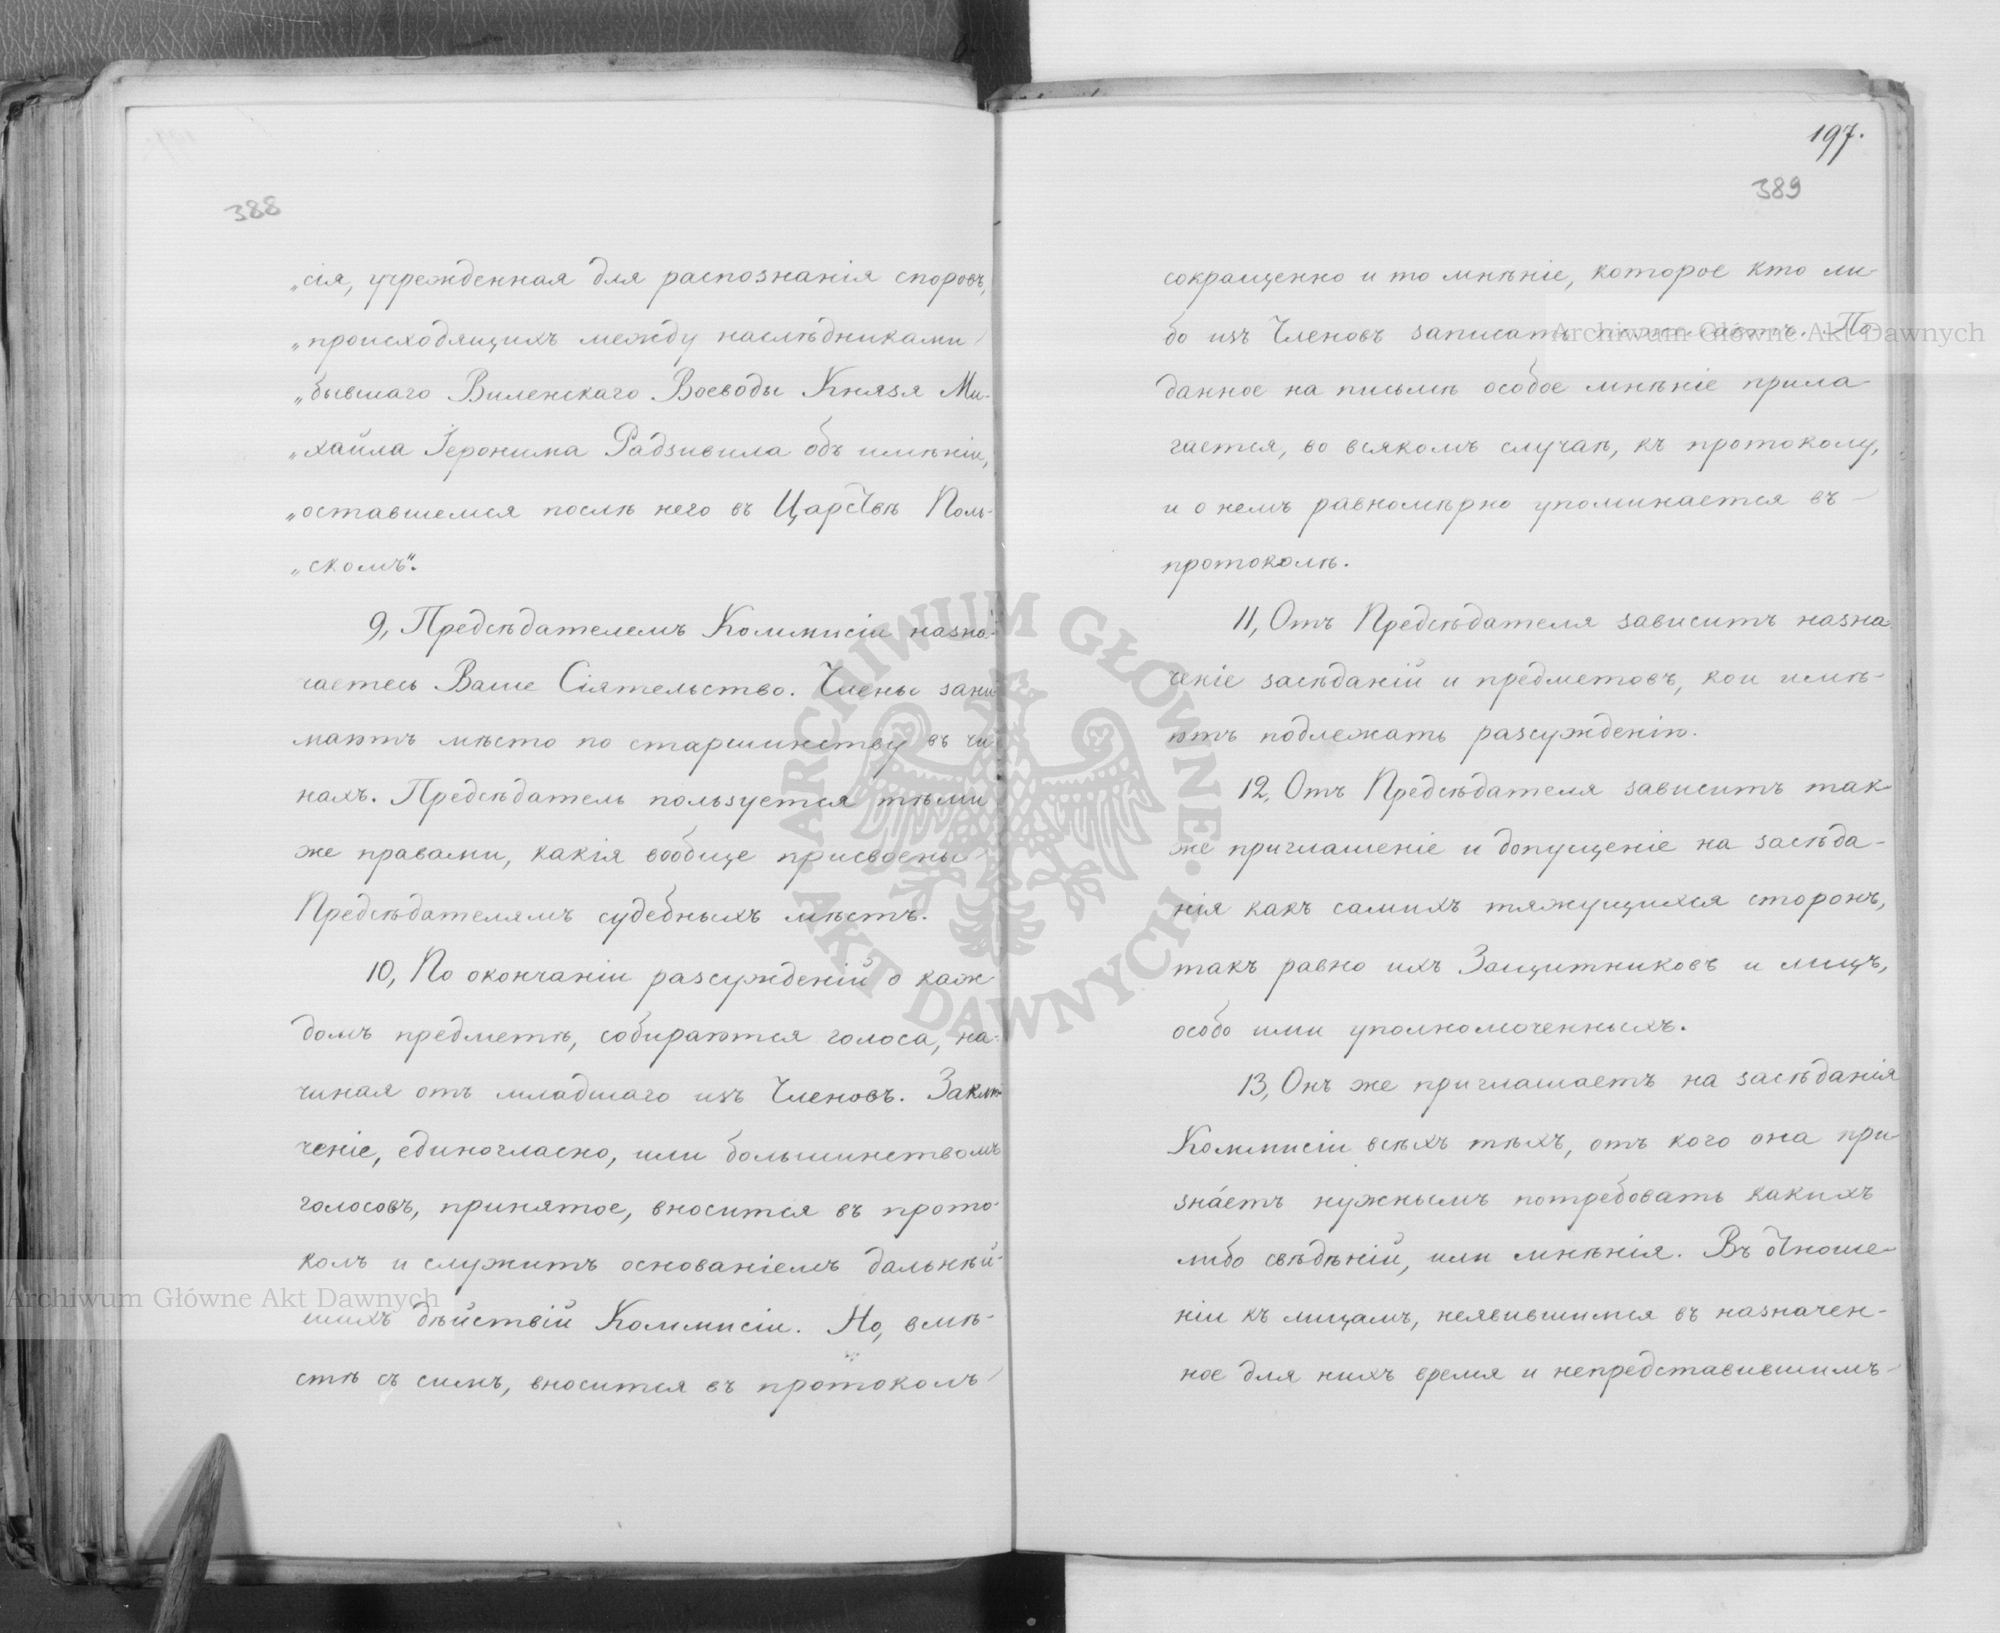 388
„сія, учрежденная для распознанія споровъ,
„происходящихъ между наслѣдниками
„бывшаго Виленскаго Воеводы Князя Ми-
„хаила Іеронима Радзивила объ имѣніи,
„оставшемся послѣ него въ Царствѣ Поль-
„скомъ“.
9, Предсѣдателемъ Коммисіи назна-
чаетесь Ваше Сіятельство. Члены зани
маютъ мѣсто по старшинству въ чи-
нахъ. Предсѣдатель пользуется тѣми
же правами, какія вообще присвоены
Предсѣдателямъ судебныхъ мѣстъ.
10, По окончаніи разсужденій о каж-
домъ предметѣ, собираются голоса, на-
чиная отъ младшаго изъ Членовъ. Заклю-
ченіе, единогласно, или большинствомъ
голосовъ, принятое, вносится въ прото-
колъ и служитъ основаніемъ дальнѣй-
шихъ дѣйствій Коммисіи. Но, вмѣ-
стѣ съ симъ, вносится въ протоколъ
197.
389
сокращенно и то мнѣніе, которое кто ли-
бо изъ Членовъ записать пожелаетъ. По-
данное на письмѣ особое мнѣніе прила
гается, во всякомъ случаѣ, къ протоколу,
и о немъ равномѣрно упоминается въ
протоколѣ.
11, Отъ Предсѣдателя зависитъ назна
ченіе засѣданій и предметовъ, кои имѣ-
ютъ подлежать разсужденію.
12, Отъ Предсѣдателя зависитъ так-
же приглашеніе и допущеніе на засѣда-
нія какъ самихъ тяжущихся сторонъ,
такъ равно ихъ Защитниковъ и лицъ,
особо ими уполномоченныхъ.
13, Онъ же приглашаетъ на засѣданія
Коммисіи всѣхъ тѣхъ, отъ кого она при
знáетъ нужнымъ потребовать какихъ
либо свѣдѣній, или мнѣнія. Въ отноше-
ніи къ лицамъ, неявившимся въ назначен-
ное для нихъ время и непредставившимъ
Archiwum Główne Akt Dawnych
Archiwum Główne Akt Dawnych
· ARCHIWUM GŁÓWNE · AKT DAWNYCH ·